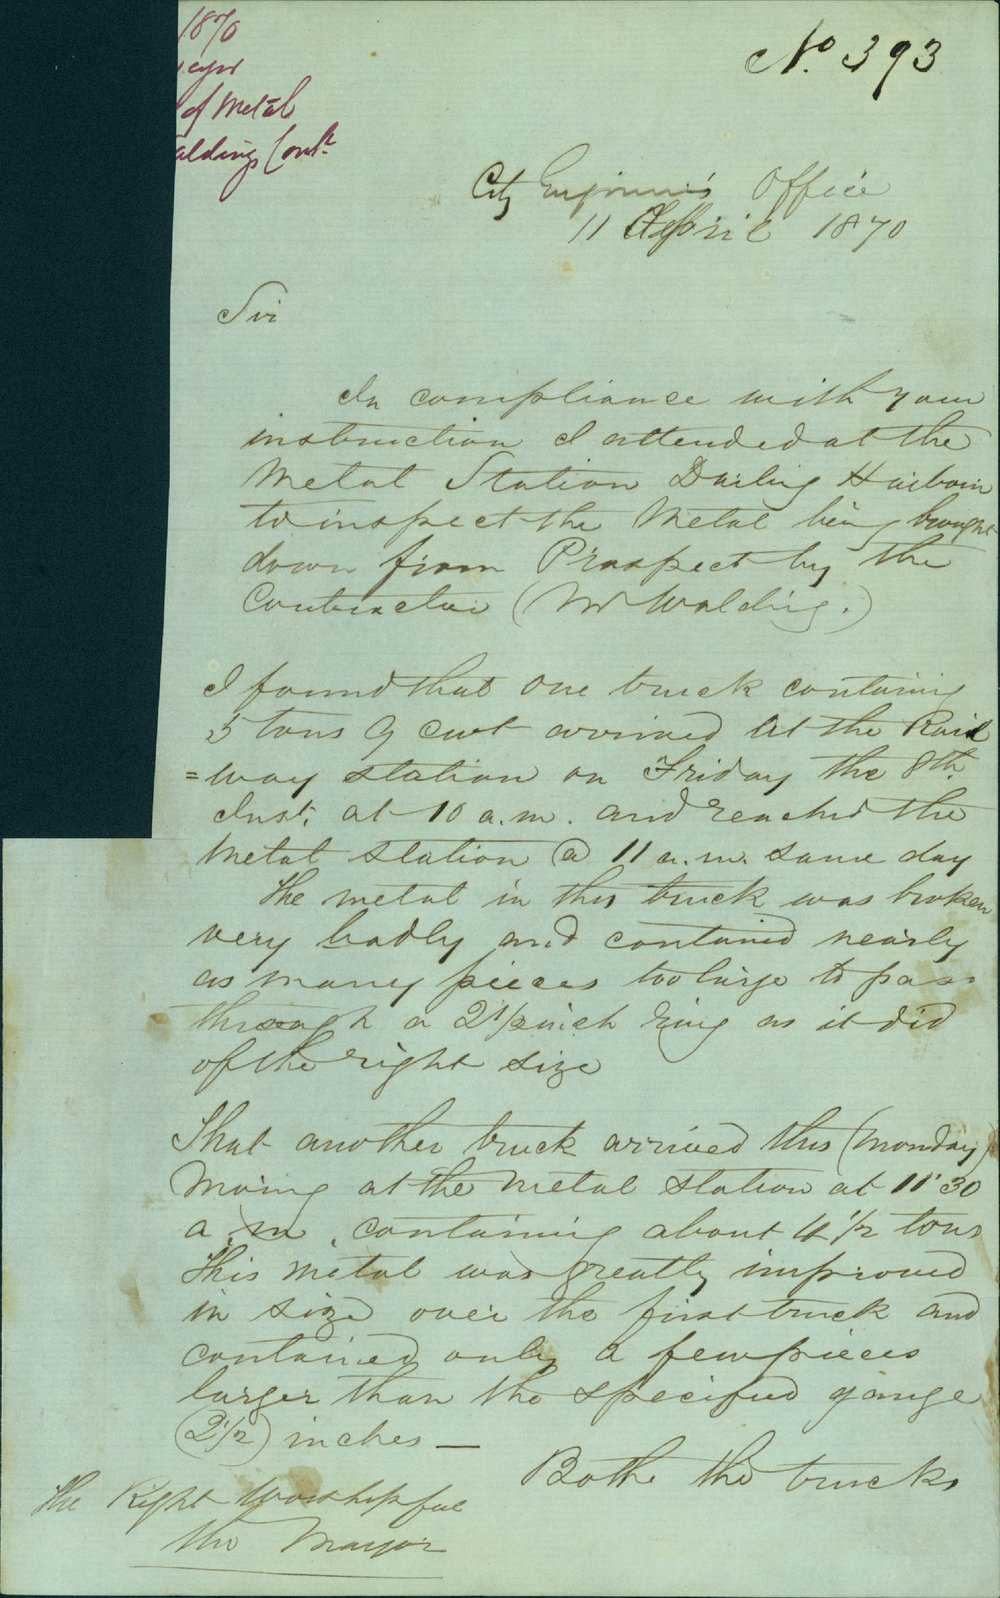 1870
of Metal
alding Contr
No. 393
City Engineer's Office
11 April 1870
Sir
In compliance with your
instruction I attended at the
Metal Station Darling Harbour
to inspect the Metal being brought
down from Prospect by the
Contractor (Mr Walding.)
I found that one truck containing
5 tons 9 cwt arrived at the Rail
=way station on Friday the 8th
Inst. at 10 a.m. and reached the
Metal station @ 11 a.m. same day
The metal in this truck was broken
very badly and contained nearly
as many pieces too large to pass
through a 2 1/2 inch ring as it did
of the right size
That another truck arrived this (Monday)
Moring at the Metal station at 11.30
a.m. containing about 4 1/2 tons
This metal was greatly improved
in size over the first truck and
contained only a few pieces
larger than the specified gauge
(2 1/2) inches —
Bothe the trucks
The Right Worshipful
the Mayor